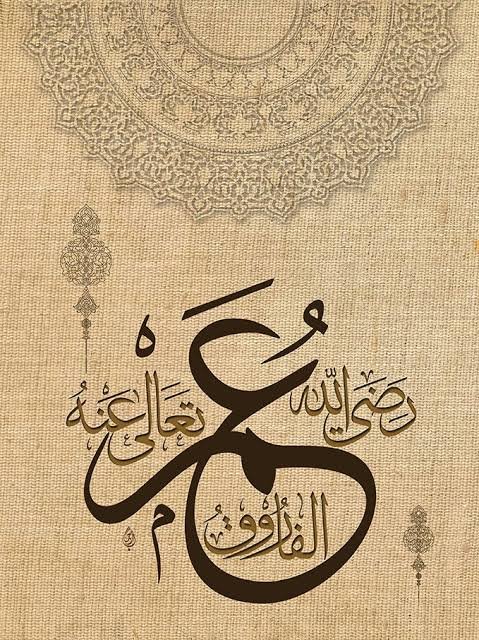 عُمَر
الفَارُوق
رَضِيَ اللّٰه
تَعَالَى عَنهُ